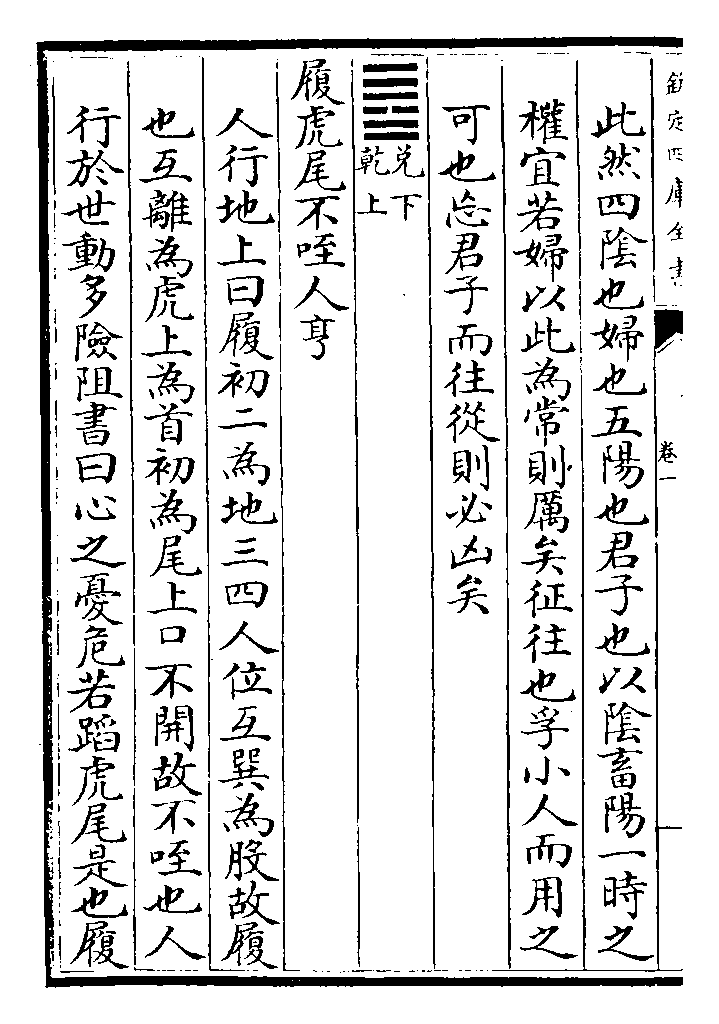 欽定四庫全書
卷一
此然四陰也婦也五陽也君子也以陰畜陽一時之
權宜若婦以此為常則厲矣征往也孚小人而用之
可也忘君子而往從則必凶矣
䷉兌下
乾上
履虎尾不咥人亨
人行地上曰履初二為地三四人位互巽為股故履
也互離為虎上為首初為尾上口不開故不咥也人
行於世動多險阻書曰心之憂危若蹈虎尾是也履